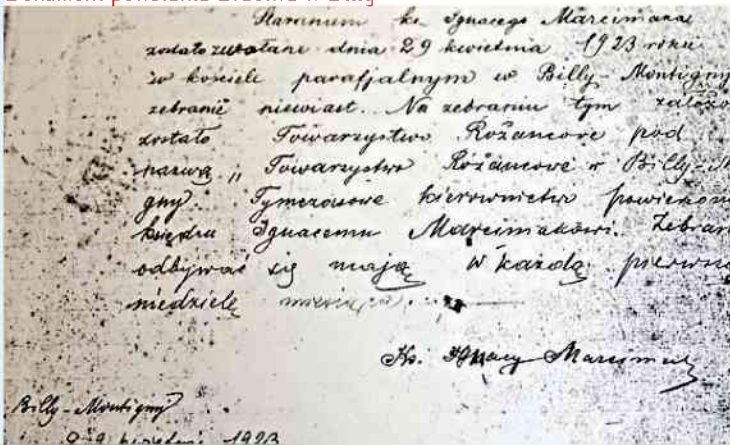 Staraniem ks. Ignacego Marcimiaka
zostało zwołane dnia 29 kwietnia 1923 roku
w kościele parafjalnym w Billy-Montigny
zebranie niewiast. Na zebraniu tym założo
zostało Towarzystwo Różancowe pod
nazwą „Towarzystwo Różancowe w Billy-M
gny". Tymczasowe kierownictwo powierzono
księdzu Ignacemu Marcimiakowi. Zebran
odbywać się mają w każdą pierwszą
niedzielę miesiąca.
Ks. Ignacy Marcimiak
Billy-Montigny
29 kwietnia 1923